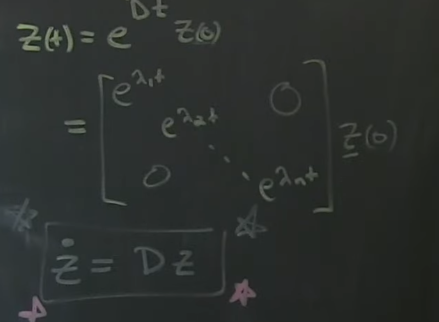 z(t) = e^{Dt} z(0)
= [ e^{λ₁t} e^{λ₂t} ⋱ e^{λₙt} 0 0 ] z(0)
ż = Dz